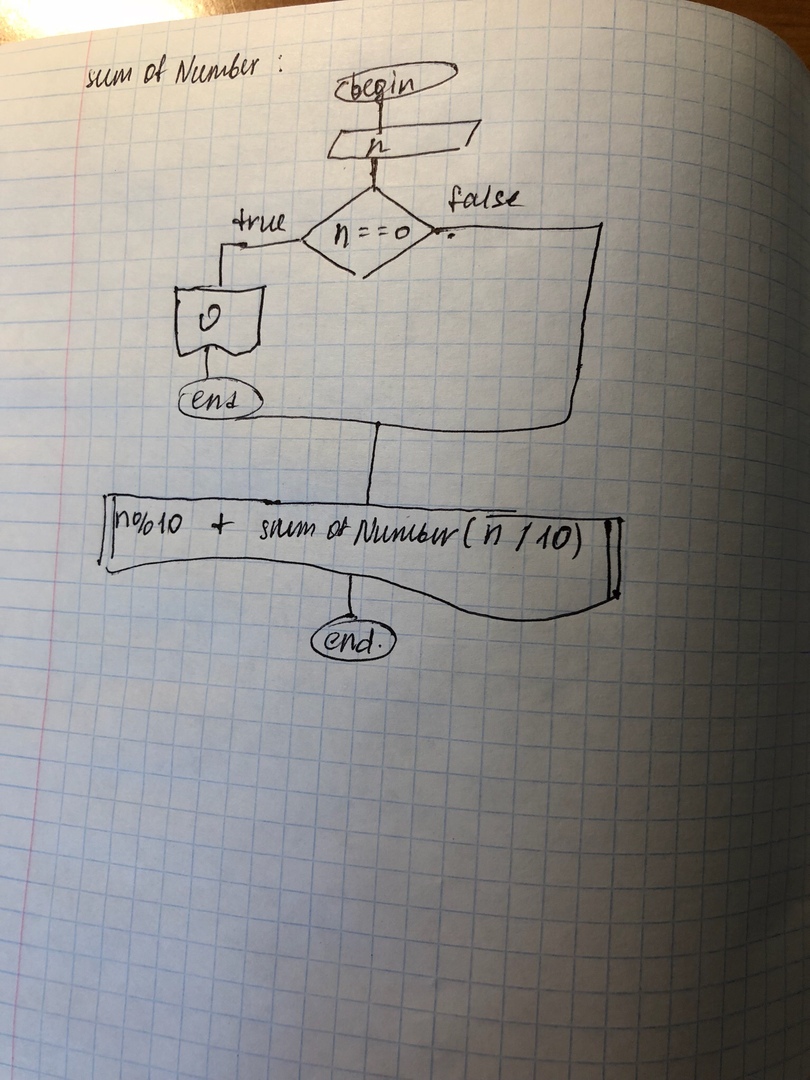 sum of Number :
begin
n
true
false
n==0
0
end
n%10 + sum of Number ( n / 10)
end.